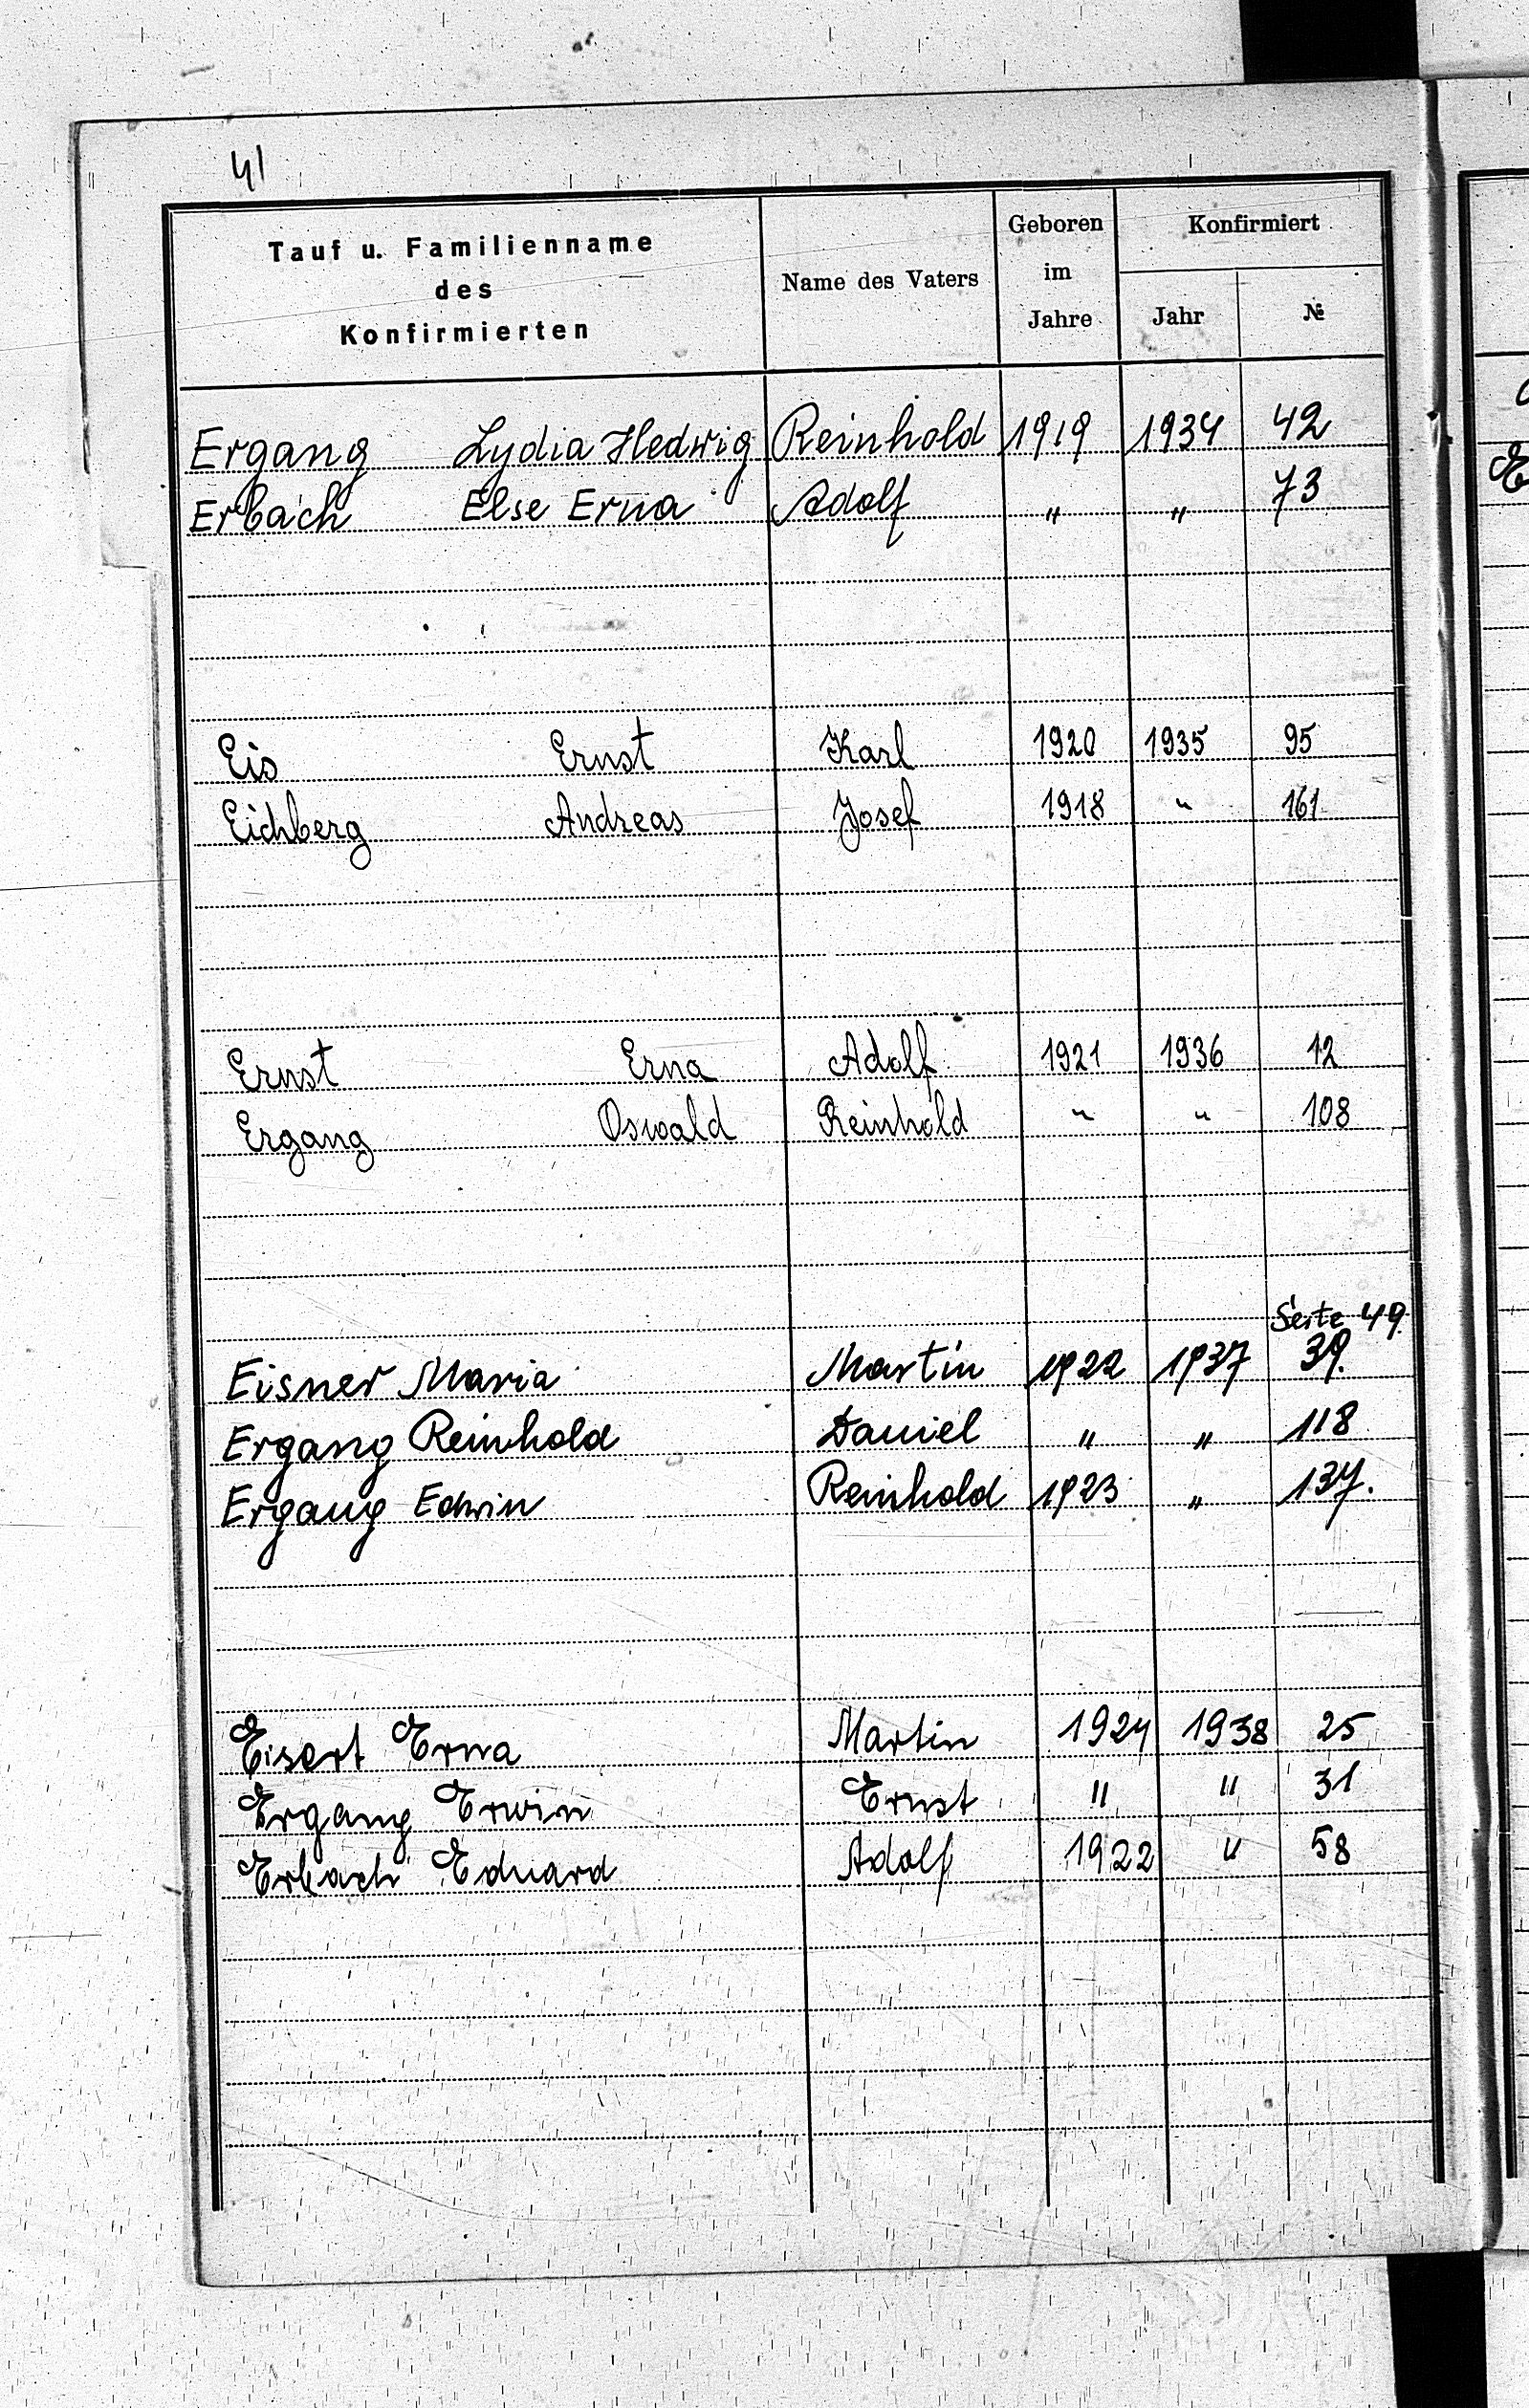 41
Tauf u. Familienname
des
Konfirmierten
Name des Vaters
Geboren
im
Jahre
Konfirmiert
Jahr
№
Ergang Lydia Hedwig Reinhold 1919 1934 42
Erbach Else Erna Adolf " " 73
Eis Ernst Karl 1920 1935 95
Eichberg Andreas Josef 1918 " 161
Ernst Erna Adolf 1921 1936 12
Ergang Oswald Reinhold " " 108
Seite 49.
Eisner Maria Martin 1922 1937 39.
Ergang Reinhold Daniel " " 118
Ergang Edwin Reinhold 1923 " 137.
Eisert Erna Martin 1924 1938 25
Ergang Erwin Ernst " " 31
Erbach Eduard Adolf 1922 " 58